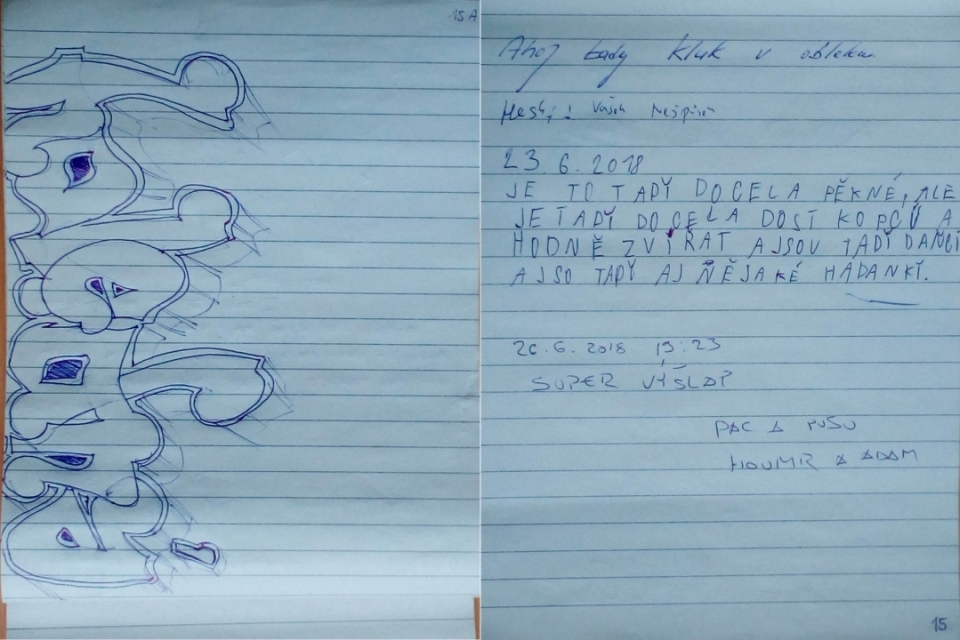 15 A
Ahoj tady kluk v obleku
Vašek
23. 6. 2018
JE TO TADY DOCELA PĚKNÉ, ALE
JE TADY DOCELA DOST KOPCŮ A
HODNĚ ZVÍŘAT AJSOU TADY DANCI
AJSO TADY AJ ŇĚJAKÉ HÁDANKY.
26. 6. 2018 19:23
SUPER VÝŠLAP
PAC A PUSU
HOUMR A ADAM
15